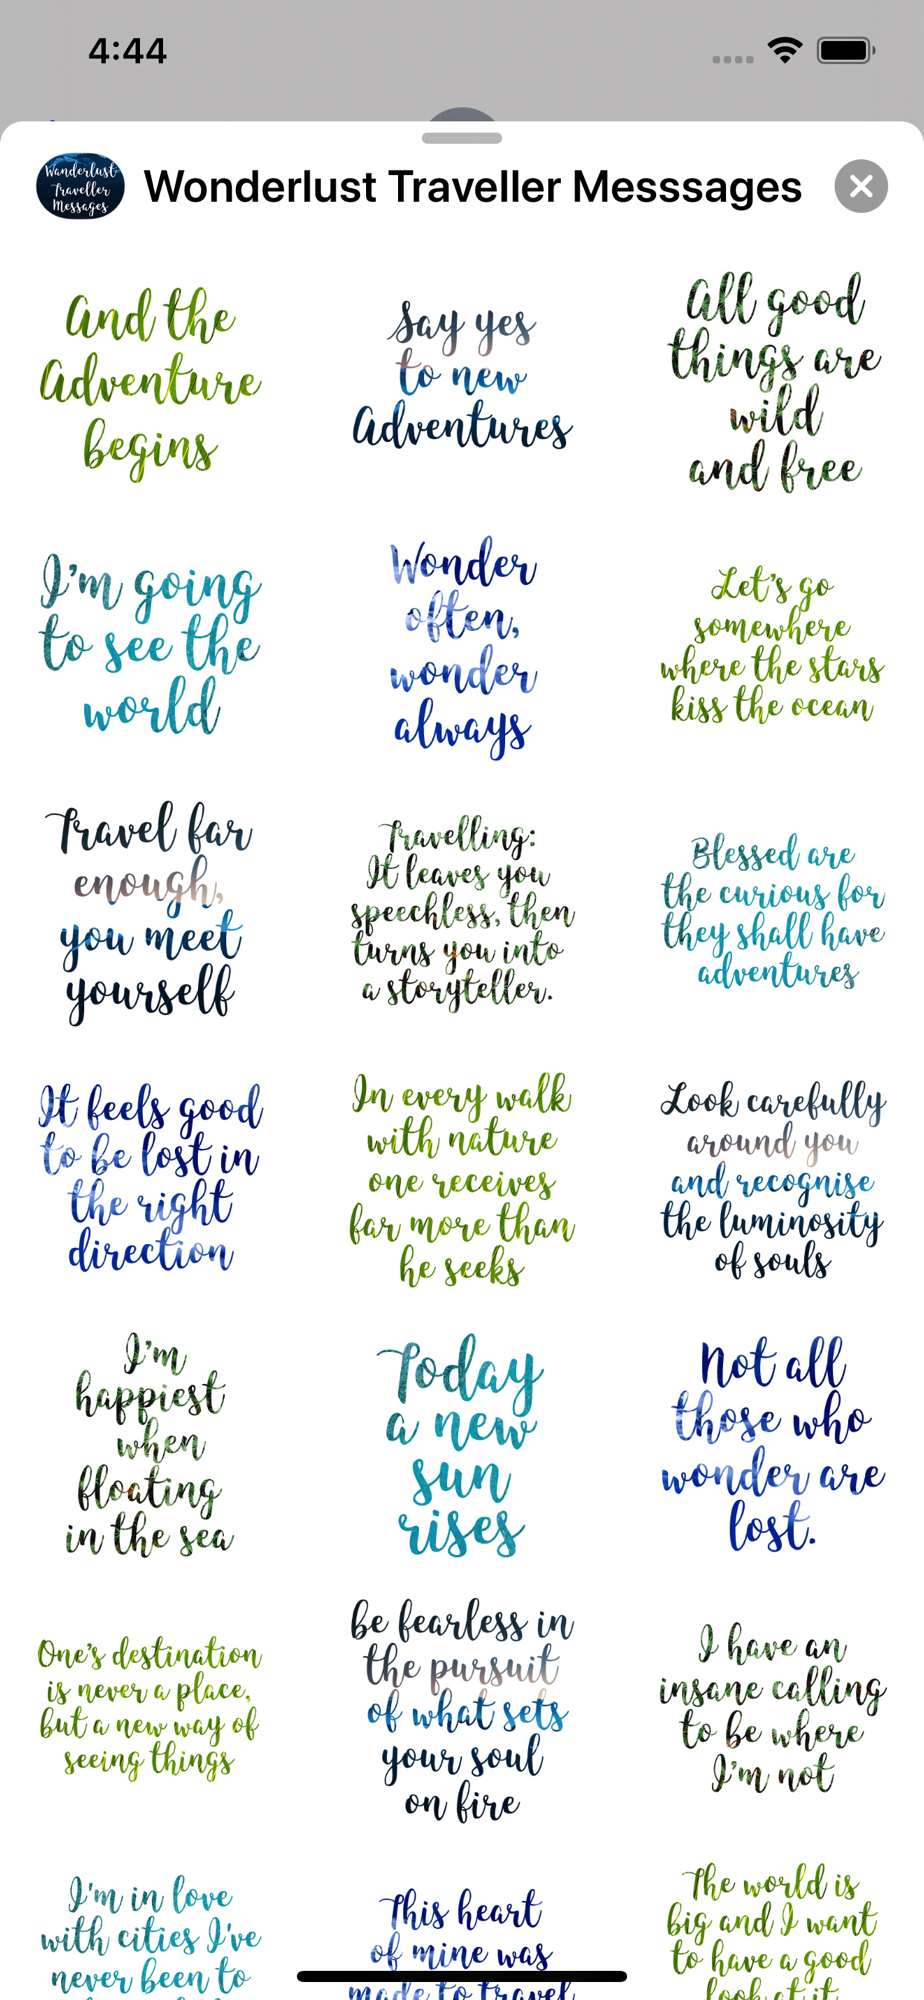 4:44
Wanderlust
Traveller
Messages
Wonderlust Traveller Messsages
And the
Adventure
begins
Say yes
to new
Adventures
All good
things are
wild
and free
I'm going
to see the
world
Wonder
often,
wonder
always
Let's go
somewhere
where the stars
kiss the ocean
Travel far
enough,
you meet
yourself
Travelling:
It leaves you
speechless, then
turns you into
a storyteller.
Blessed are
the curious for
they shall have
adventures
It feels good
to be lost in
the right
direction
In every walk
with nature
one receives
far more than
he seeks
Look carefully
around you
and recognise
the luminosity
of souls
I'm
happiest
when
floating
in the sea
Today
a new
sun
rises
Not all
those who
wonder are
lost.
One's destination
is never a place,
but a new way of
seeing things
be fearless in
the pursuit
of what sets
your soul
on fire
I have an
insane calling
to be where
I'm not
I'm in love
with cities I've
never been to
This heart
of mine was
made to travel
The world is
big and I want
to have a good
look at it